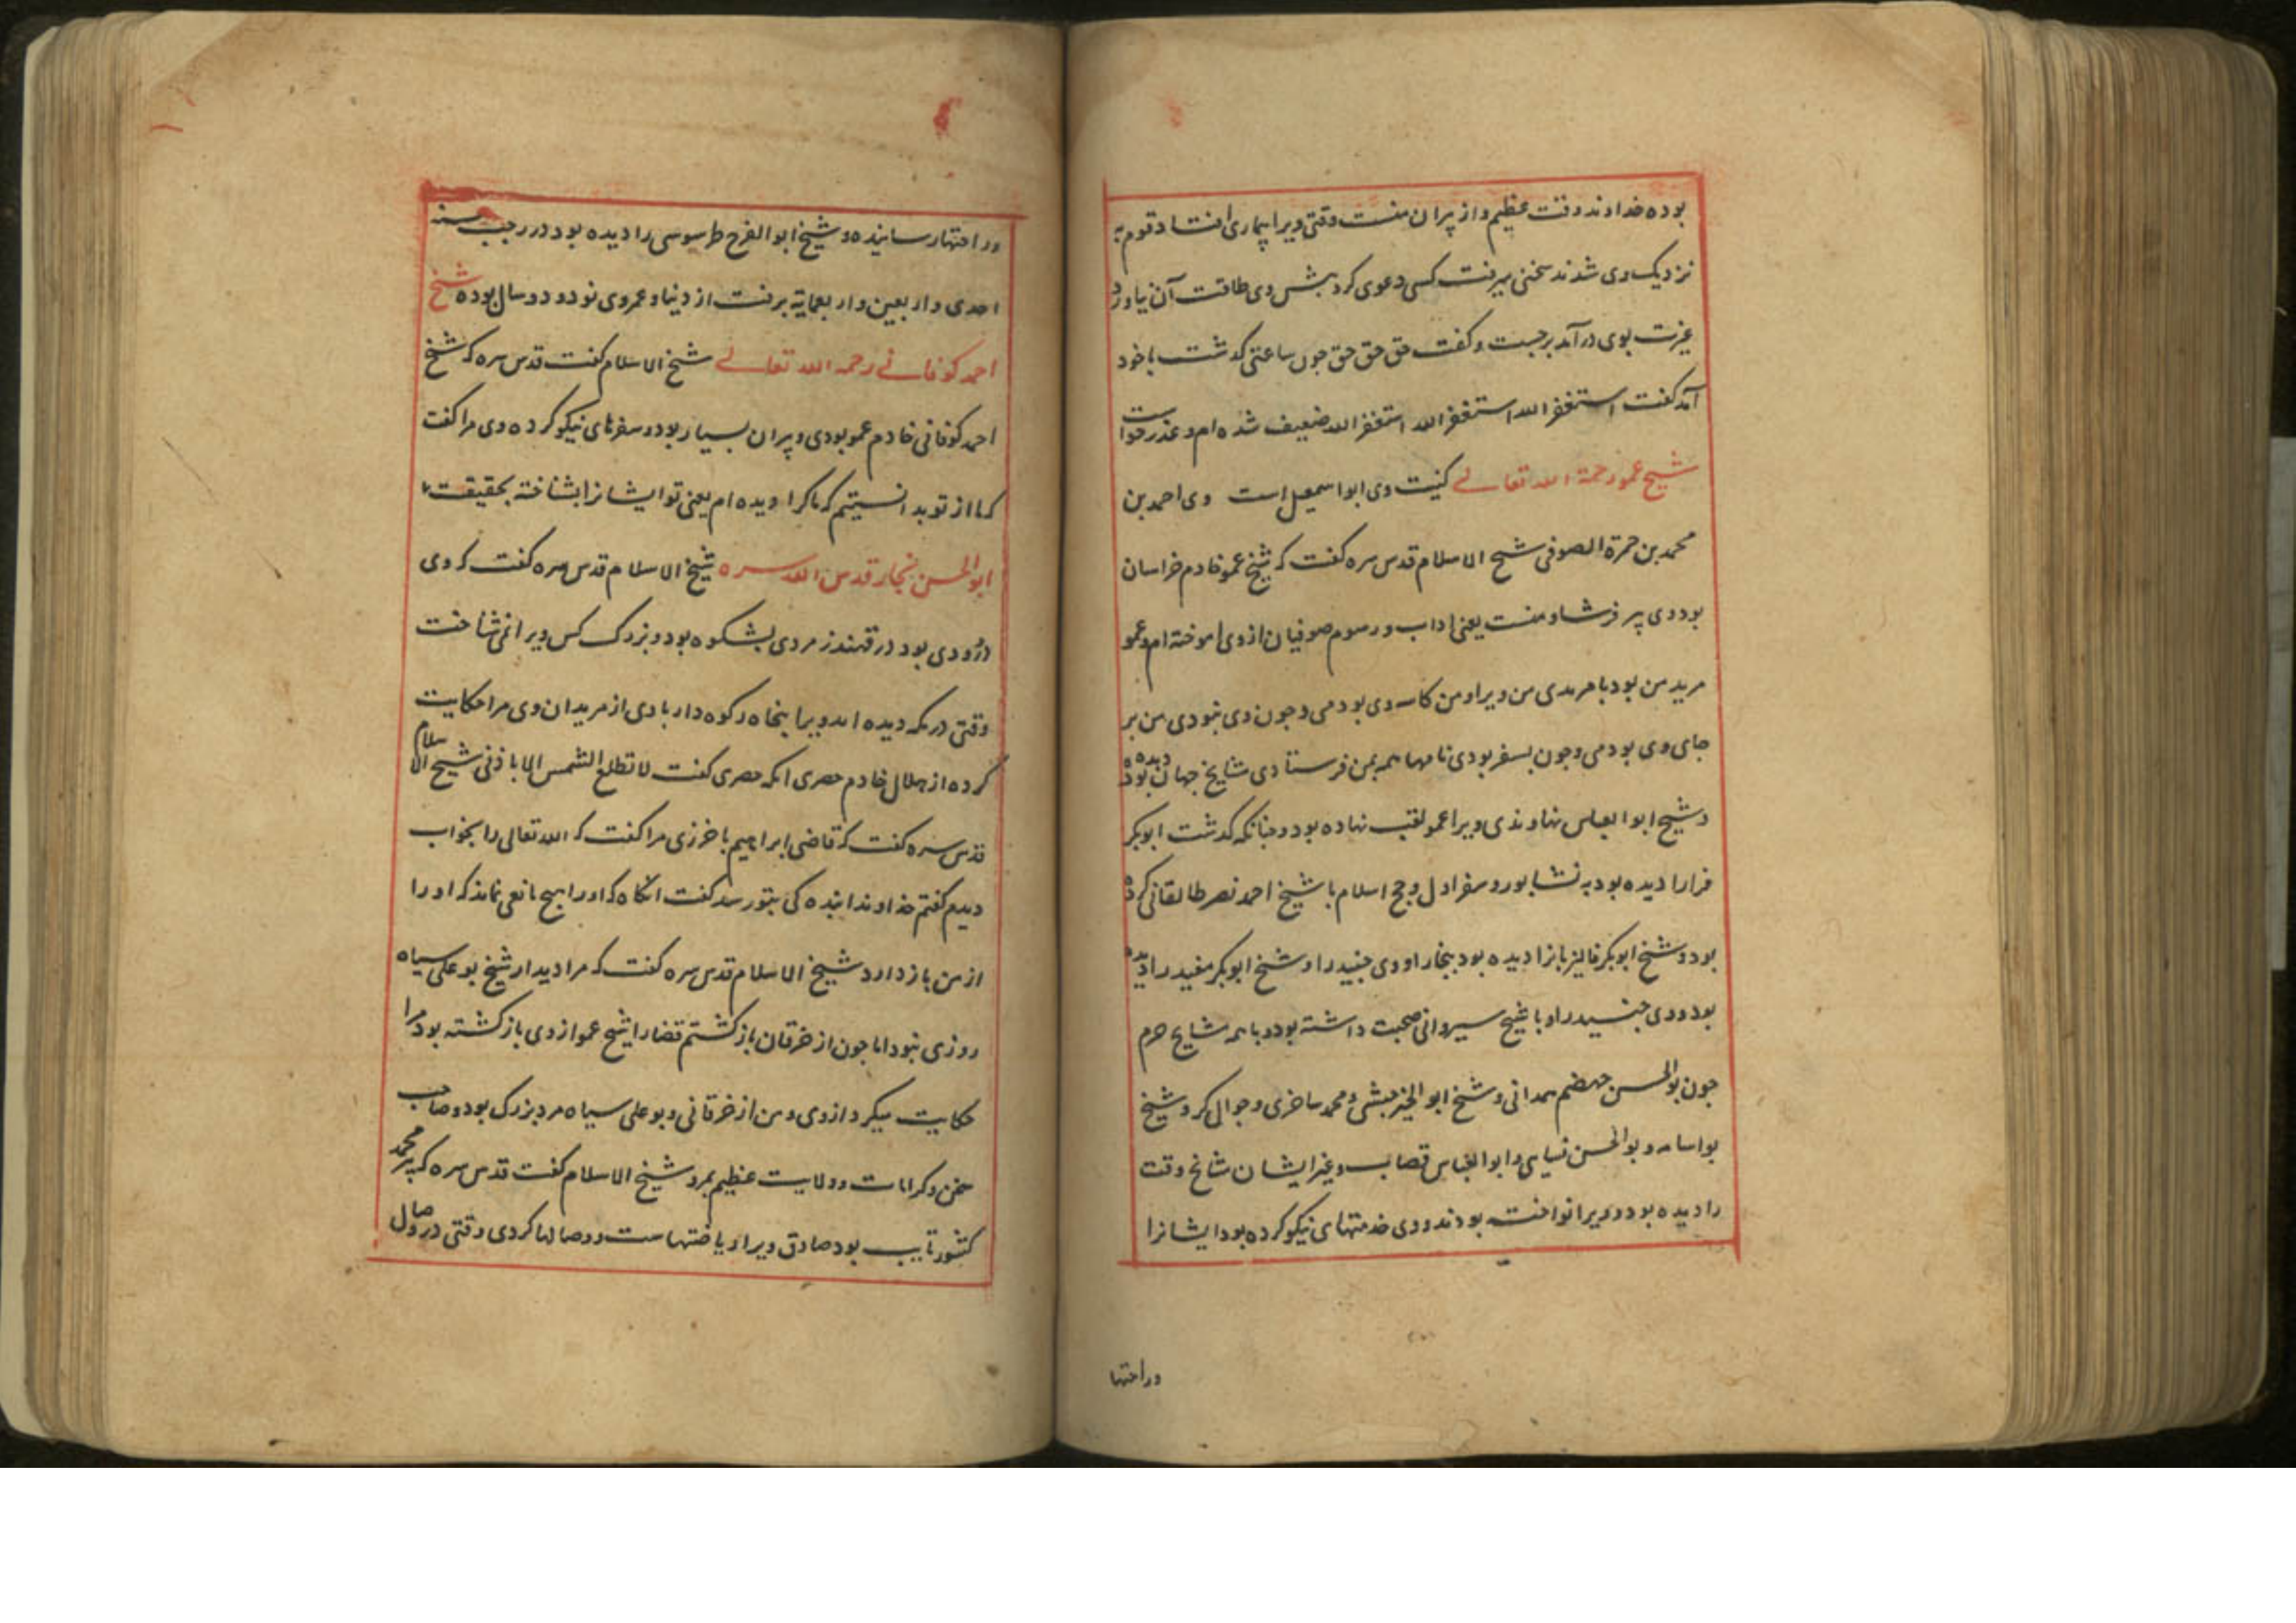 بوده خداوند وقت عظیم و از پیران منست وقتی ویرا بیماری افتاد قوم به
نزدیک وی شدند سخنی میرفت کسی دعوی کرد پیش وی طاقت آن نیاورد
غیرت بوی درآمد برجست و گفت حق حق حق جون ساعتی گذشت باخود
آمد گفت استغفر الله استغفر الله استغفر الله ضعیف شده ام و عذر خواست
شیخ عمو رحمة الله تعالے کنیت وی ابو اسمعیل است وی احمد بن
محمد بن حمزة الصوفی شیخ الاسلام قدس سره گفت که شیخ عمو خادم خراسان
بود وی پیر فرشاد منست یعنی اداب و رسوم صوفیان از وی اموخته ام و عمو
مرید من بود با مریدی من ویرا و من کاسه وی بودمی و جون وی نبودی من بر
جای وی بودمی و جون بسفر بودی نامها همه بمن فرستادی مشایخ جهان دیده بود
و شیخ ابو العباس نهاوندی ویرا عمو لقب نهاده بود و جنانکه گذشت ابوبکر
فرا را دیده بود به نشابور و سفر اول و حج اسلام با شیخ احمد نصر طالقانی کرده
بود و شیخ ابوبکر فالیزبانرا دیده بود ببخارا و وی جنید را و شیخ ابوبکر مفید را دیده
بود و وی جنید را و با شیخ سیروانی صحبت داشته بود و با همه مشایخ حرم
جون بوالحسن جهضم همدانی و شیخ ابوالخیر حبشی و محمد ساخری و جوال گر و شیخ
بو اسامه و بوالحسن و ابوالعباس قصاب و غیر ایشان مشایخ وقت
را دیده بود و ویرا نواخته بودند و وی خدمتهای نیکو کرده بود ایشانرا
و راحتها
و راحتها رسانیده و شیخ ابو الفرح طرسوسی را دیده بود در رجب سنه
احدی و اربعین و اربعمایة برفت از دنیا و عمر وی نود و دو سال بوده شیخ
احمد کوفانے رحمه الله تعالے شیخ الاسلام گفت قدس سره که شیخ
احمد کوفانی خادم عمو بودی و پیران بسیار بود و سفرهای نیکو کرده وی مرا گفت
که ما از تو بدانستیم که ما کرا دیده ام یعنی تو ایشانرا بشناخته بحقیقت
ابوالحسن نجار قدس الله سره شیخ الاسلام قدس سره گفت که وی
درودی بود در قهندز مردی بشکوه بود و بزرگ کس ویرا نمی شناخت
وقتی در مکه دیده اند ویرا پنجاه رکوه دار با وی از مریدان وی مرا حکایت
کرده از هلال خادم حصری انکه حصری گفت لا تطلع الشمس الا باذنی شیخ الاسلام
قدس سره گفت که قاضی ابراهیم باخرزی مرا گفت که الله تعالی را بخواب
دیدم گفتم خداوندا بنده کی بتو رسد گفت انگاه که اورا هیچ مانعی نماند که او را
از من باز دارد شیخ الاسلام قدس سره گفت که مرا دیدار شیخ بو علی سیاه
روزی نبود اما جون از خرقان باز گشتم قضا را شیخ عمو از وی بازگشته بود مرا
حکایت میکرد از وی و من از خرقانی و بو علی سیاه مرد بزرگ بود و صاحب
سخن و کرامات و ولایت عظیم بمرو شیخ الاسلام گفت قدس سره که پیر محمد
کشور تایب بود صادق ویرا ریاضتهاست و وصالها کردی وقتی در وصال